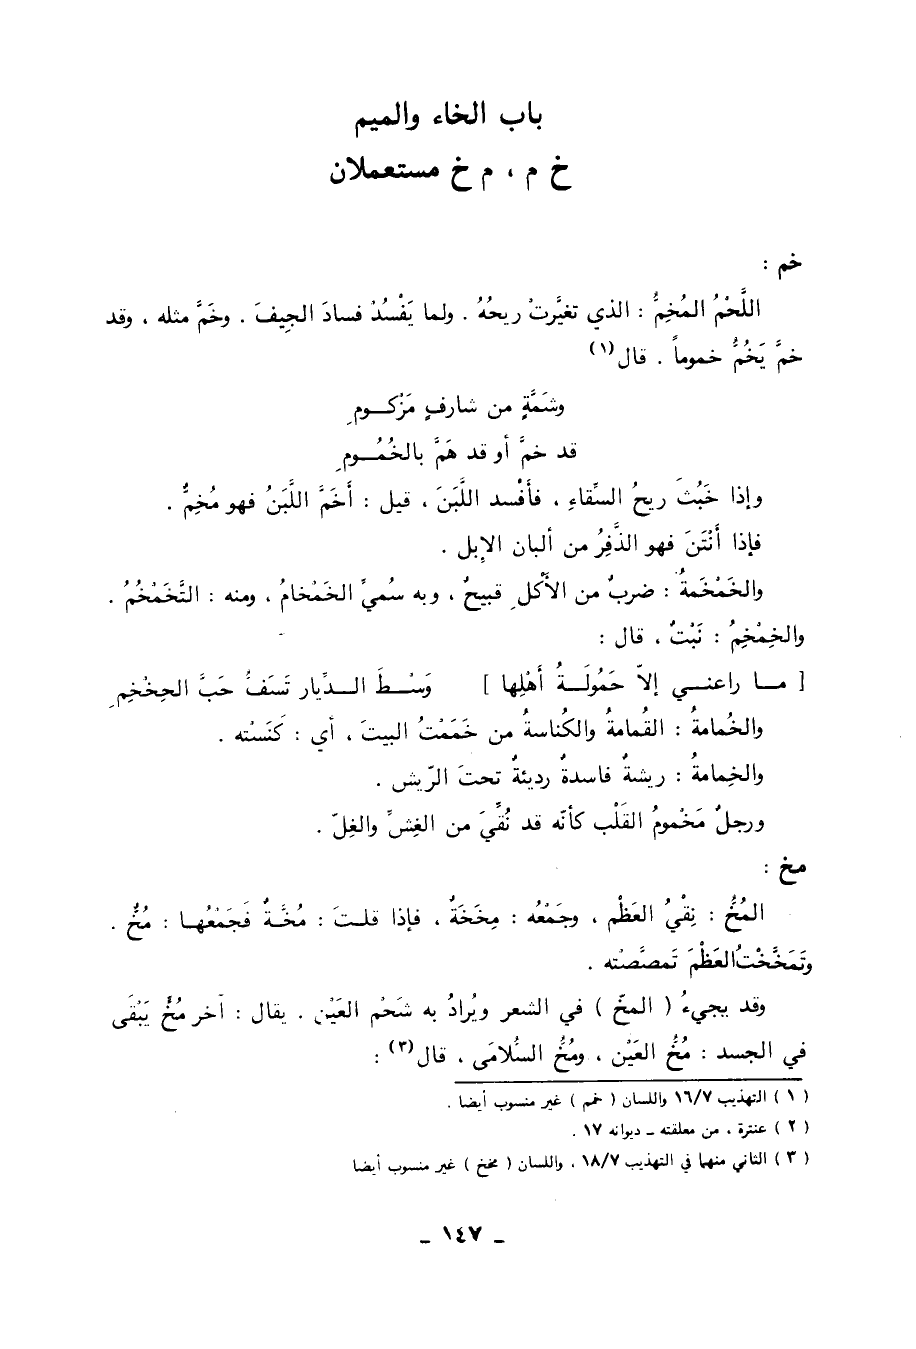 باب الخاء والميم
خ م ، م خ مستعملان
خم :
اللَّحْمُ المُخِمُّ : الذي تغيَّرتْ ريحُهُ . ولما يَفْسُدْ فسادَ الجِيفَ . وخَمَّ مثله ، وقد
خمَّ يَخُمُّ خموماً . قال(١)
وشَمَّةٍ من شارفٍ مَزْكومِ
قد خمَّ أو قد هَمَّ بالخُمُومِ
وإذا خَبُثَ ريحُ السِّقاءِ ، فأَفْسد اللَّبَنَ ، قيل : أَخَمَّ اللَّبَنُ فهو مُخِمٌّ .
فإذا أَنْتَنَ فهو الذَّفِرُ من ألبان الإبل .
والخَمْخَمةُ : ضربٌ من الأَكْلِ قبيحٌ ، وبه سُميِّ الخَمْخامُ ، ومنه : التَّخَمْخُمُ .
والخِمْخِمُ : نَبْتٌ ، قال :
[ ما راعني إلاّ حَمُولَةُ أَهْلِها ] وَسْطَ الدِّيار تَسَفُّ حَبَّ الخِخْخِمِ
والخُمامةُ : القُمامةُ والكُناسةُ من خَمَمْتُ البيتَ ، أي : كَنَسْته .
والخِمامةُ : ريشةٌ فاسدةٌ رديئةٌ تحتَ الرّيش .
ورجلٌ مَخْمومُ القَلْب كأنّه قد نُقِّيَ من الغِشِّ والغِلّ .
مخ :
المُخُّ : نِقْيُ العَظْم ، وجَمْعُه : مِخَخَةٌ ، فإذا قلتَ : مُخَّةٌ فَجَمْعُها : مُخٌّ .
وتَمَخَّخْتُ العَظْمَ تَمصَّصْته .
وقد يجيءُ ( المخّ ) في الشعر ويُرادُ به شَحْم العَيْن . يقال : آخر مُخٍّ يَبْقَى
في الجسد : مُخُّ العَيْن ، ومُخُّ السُّلامَى ، قال(٣) :
( ١ ) التهذيب ١٦/٧ واللسان ( خم ) غير منسوب أيضا .
( ٢ ) عنترة ، من معلقته ــ ديوانه ١٧ .
( ٣ ) الثاني منهما في التهذيب ١٨/٧ ، واللسان ( مخخ ) غير منسوب أيضا
ــ ١٤٧ ــ